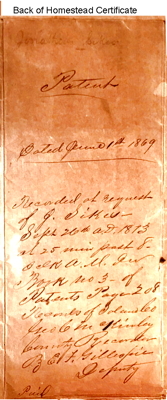 Back of Homestead Certificate
Patent
Dated June 1st 1869
Recorded at request
of J. Sikes
Sept 20th A.D. 1873
at 25 min past 8
A.M. in
Book No 3 of
Patents Page 208
Records of
County Recorder
By Gillespie
Deputy
Paid